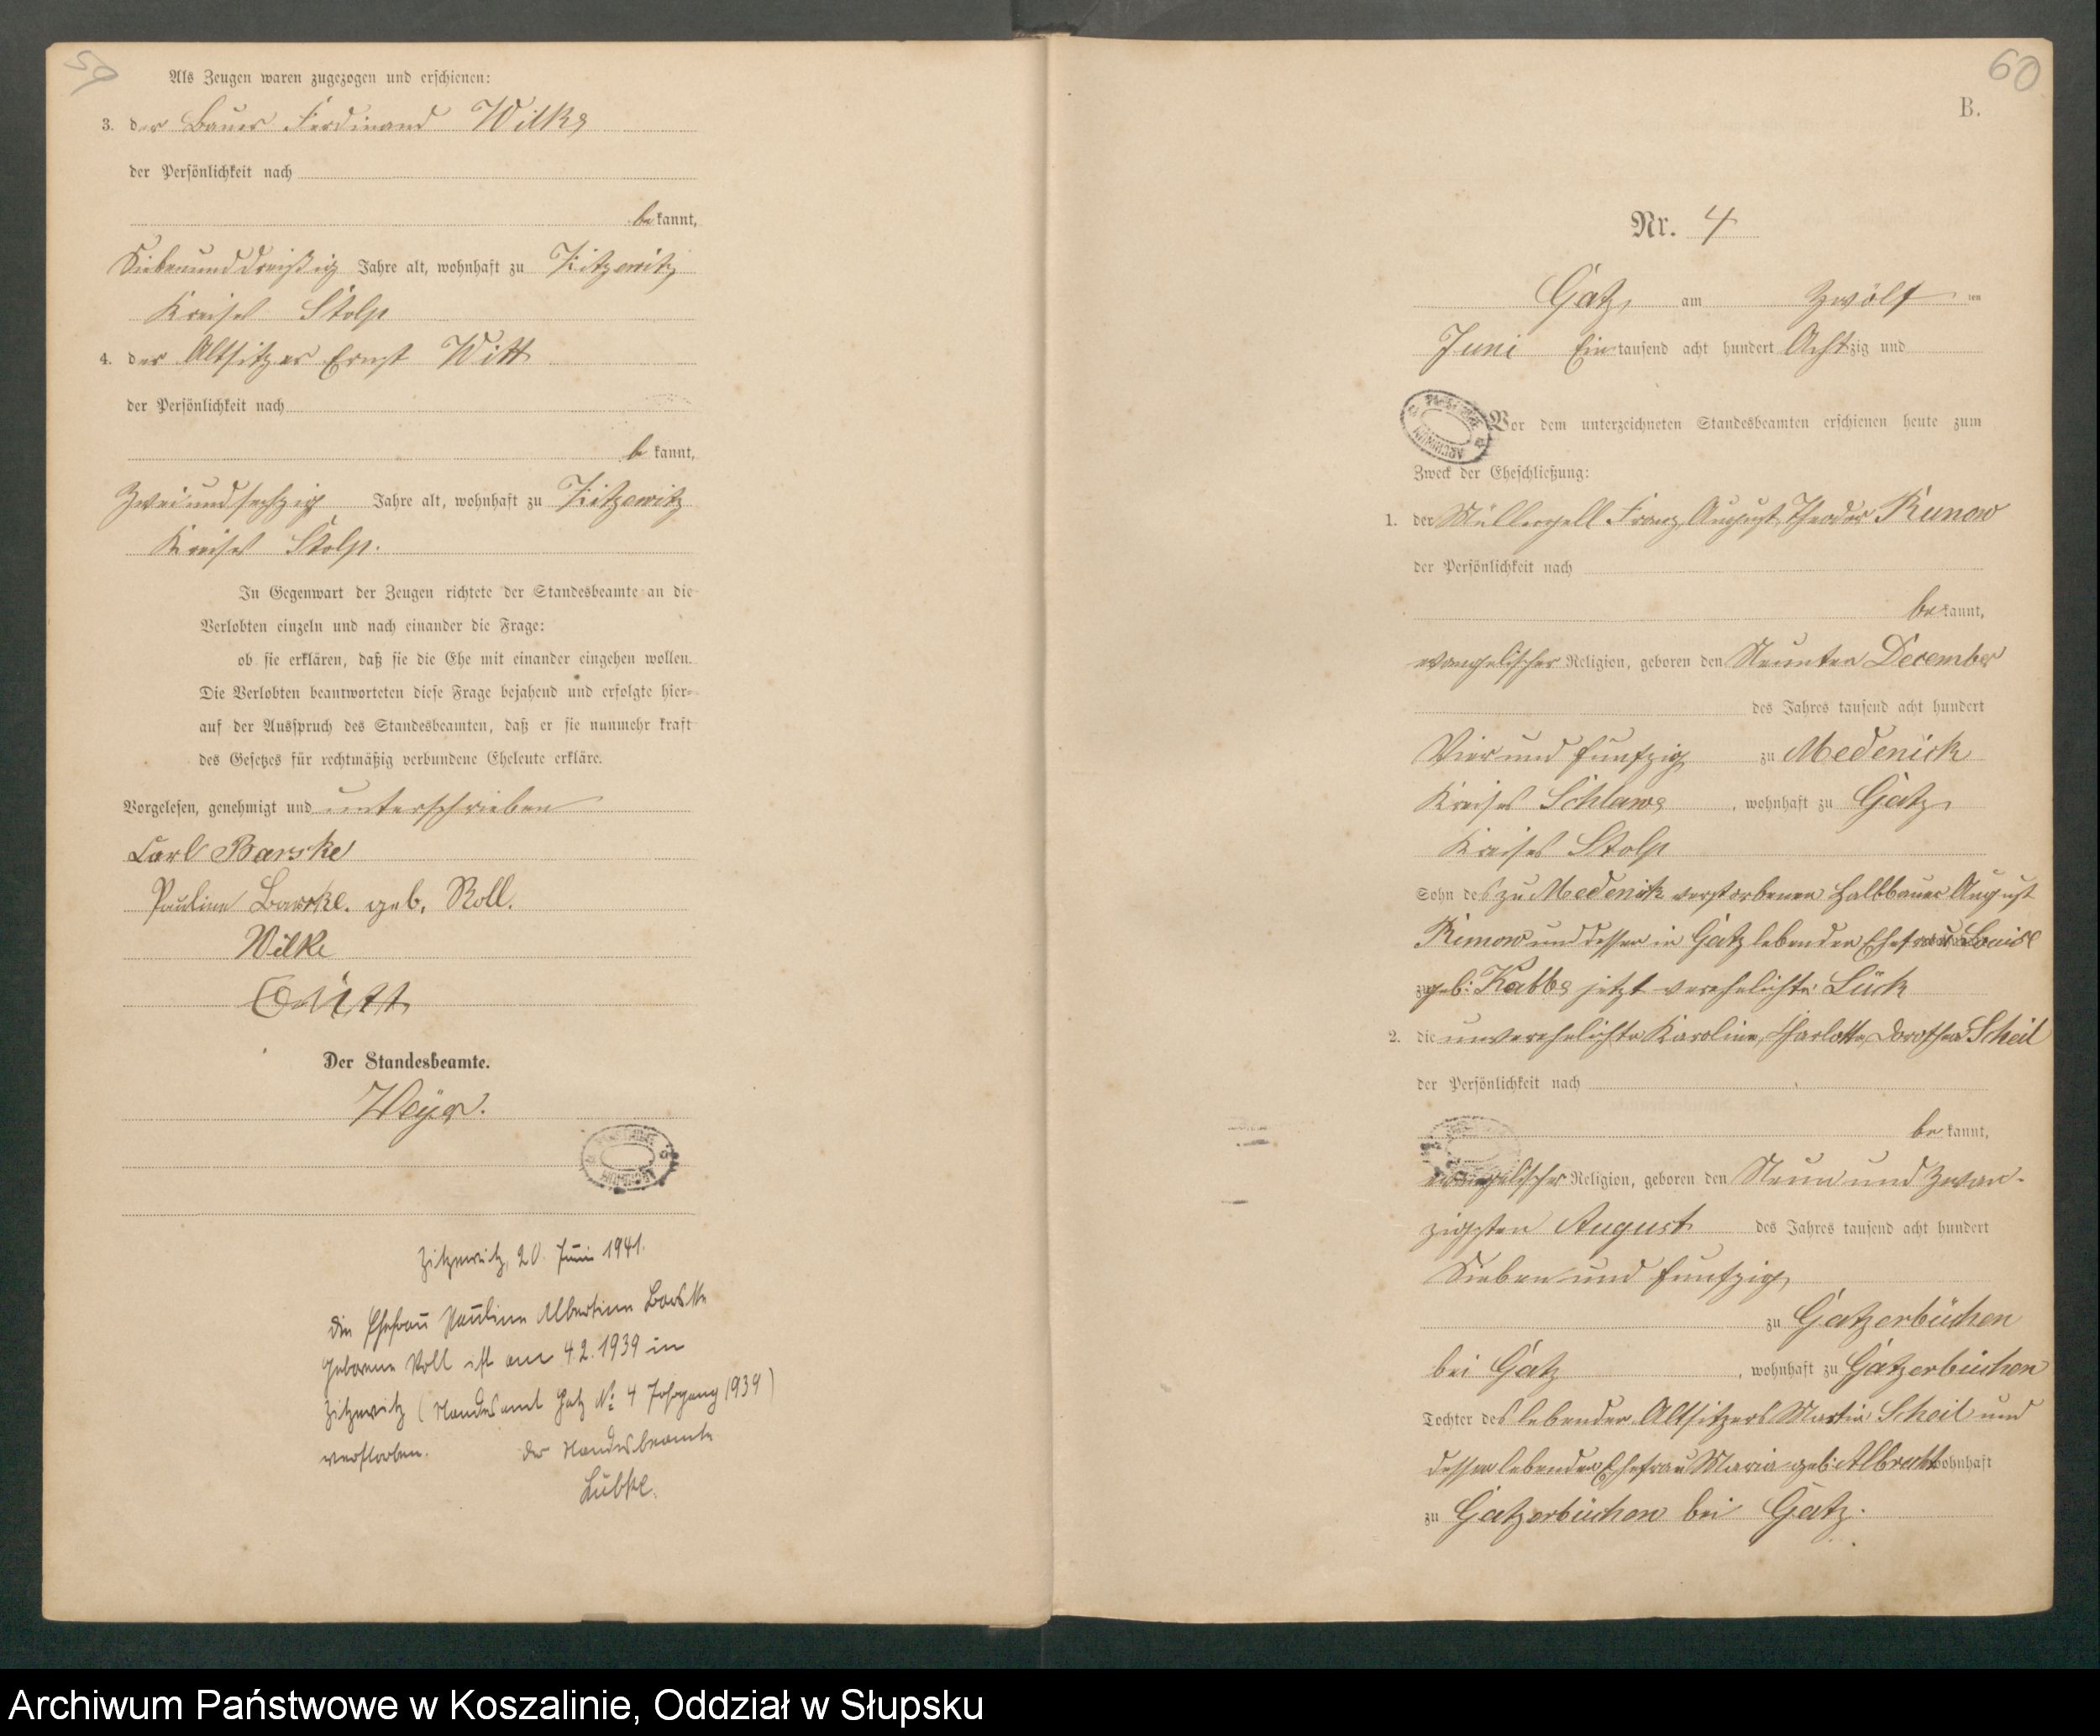 59
Als Zeugen waren zugezogen und erschienen:
3. der Bauer Ferdinand Wilke
der Persönlichkeit nach
bekannt,
Siebenunddreißig Jahre alt, wohnhaft zu Zitzewitz
Kreises Stolp
4. der Altsitzer Ernst Witt
der Persönlichkeit nach
bekannt,
Zweiundsechzig Jahre alt, wohnhaft zu Zitzewitz
Kreises Stolp.
In Gegenwart der Zeugen richtete der Standesbeamte an die
Verlobten einzeln und nach einander die Frage:
ob sie erklären, daß sie die Ehe mit einander eingehen wollen.
Die Verlobten beantworteten diese Frage bejahend und erfolgte hier-
auf der Ausspruch des Standesbeamten, daß er sie nunmehr kraft
des Gesetzes für rechtmäßig verbundene Eheleute erkläre.
Vorgelesen, genehmigt und unterschrieben
Carl Barske
Pauline Barske. geb. Roll.
Wilke
E Witt
Der Standesbeamte.
Zitzewitz, 20. Juni 1941.
Die Ehefrau Pauline Albertine Barske
geborene Roll ist am 4.2.1939 in
Zitzewitz (Standesamt Gatz No 4 Jahrgang 1939)
verstorben. Der Standesbeamte
Lübke.
60
B.
Nr. 4
Gatz, am Zwölf ten
Juni Ein tausend acht hundert Achtzig und
Vor dem unterzeichneten Standesbeamten erschienen heute zum
Zweck der Eheschließung:
1. der Müllergesell Franz August Theodor Kunow
der Persönlichkeit nach
bekannt,
evangelischer Religion, geboren den Neunten December
des Jahres tausend acht hundert
Vier und funfzig zu Medenick
Kreises Schlawe, wohnhaft zu Gatz,
Kreises Stolp
Sohn des zu Medenick verstorbenen Halbbauer August
und dessen in Gatz lebenden Ehefrau Louise
geb: jetzt verehelichte Lück
2. die unverehelichte Karoline, Charlotte, Dorothea Scheil
der Persönlichkeit nach
bekannt,
evangelischer Religion, geboren den Neun und zwan-
zigsten August des Jahres tausend acht hundert
Sieben und funfzig
zu Gatzerbüchen
bei Gatz, wohnhaft zu Gatzerbüchen
Tochter des lebenden Altsitzers Martin Scheil und
dessen lebenden Ehefrau Maria geb: Albrecht wohnhaft
zu Gatzerbüchen bei Gatz.
Archiwum Państwowe w Koszalinie, Oddział w Słupsku